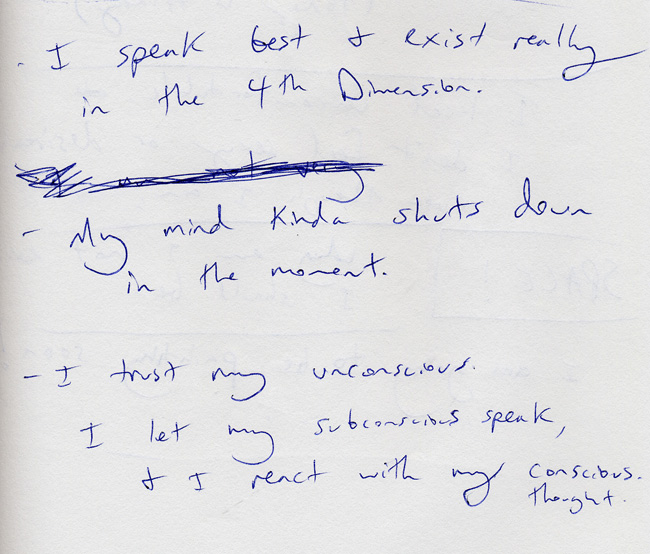 - I speak best & exist really
in the 4th Dimension.
- My mind kinda shuts down
in the moment.
- I trust my unconscious.
I let my subconscious speak,
& I react with my conscious.
thought.